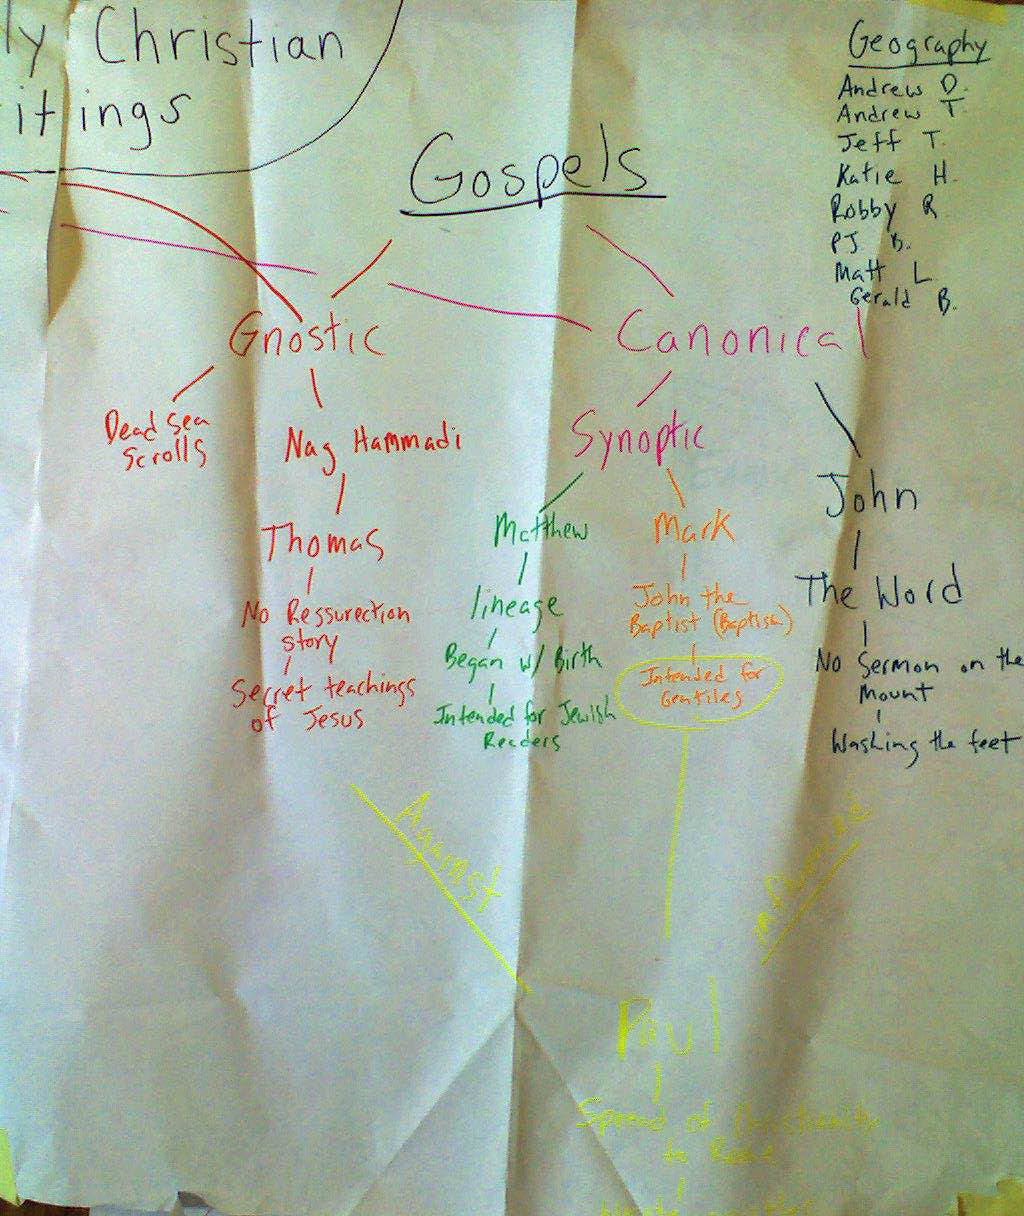 ly Christian
itings
Geography
Andrew D.
Andrew T.
Jeff T.
Katie H.
Robby R
PJ B.
Matt L
Gerald B.
Gospels
Gnostic
Canonical
Dead Sea
Scrolls
Nag Hammadi
Synoptic
John
Thomas
Matthew
Mark
The Word
No Ressurection
story
lineage
John the
Baptist (Baptism)
No Sermon on the
Mount
Secret teachings
of Jesus
Began w/ Birth
Intended for
Gentiles
Washing the feet
Intended for Jewish
Readers
Against
influence
Paul
Spread of Christianity
to Rome